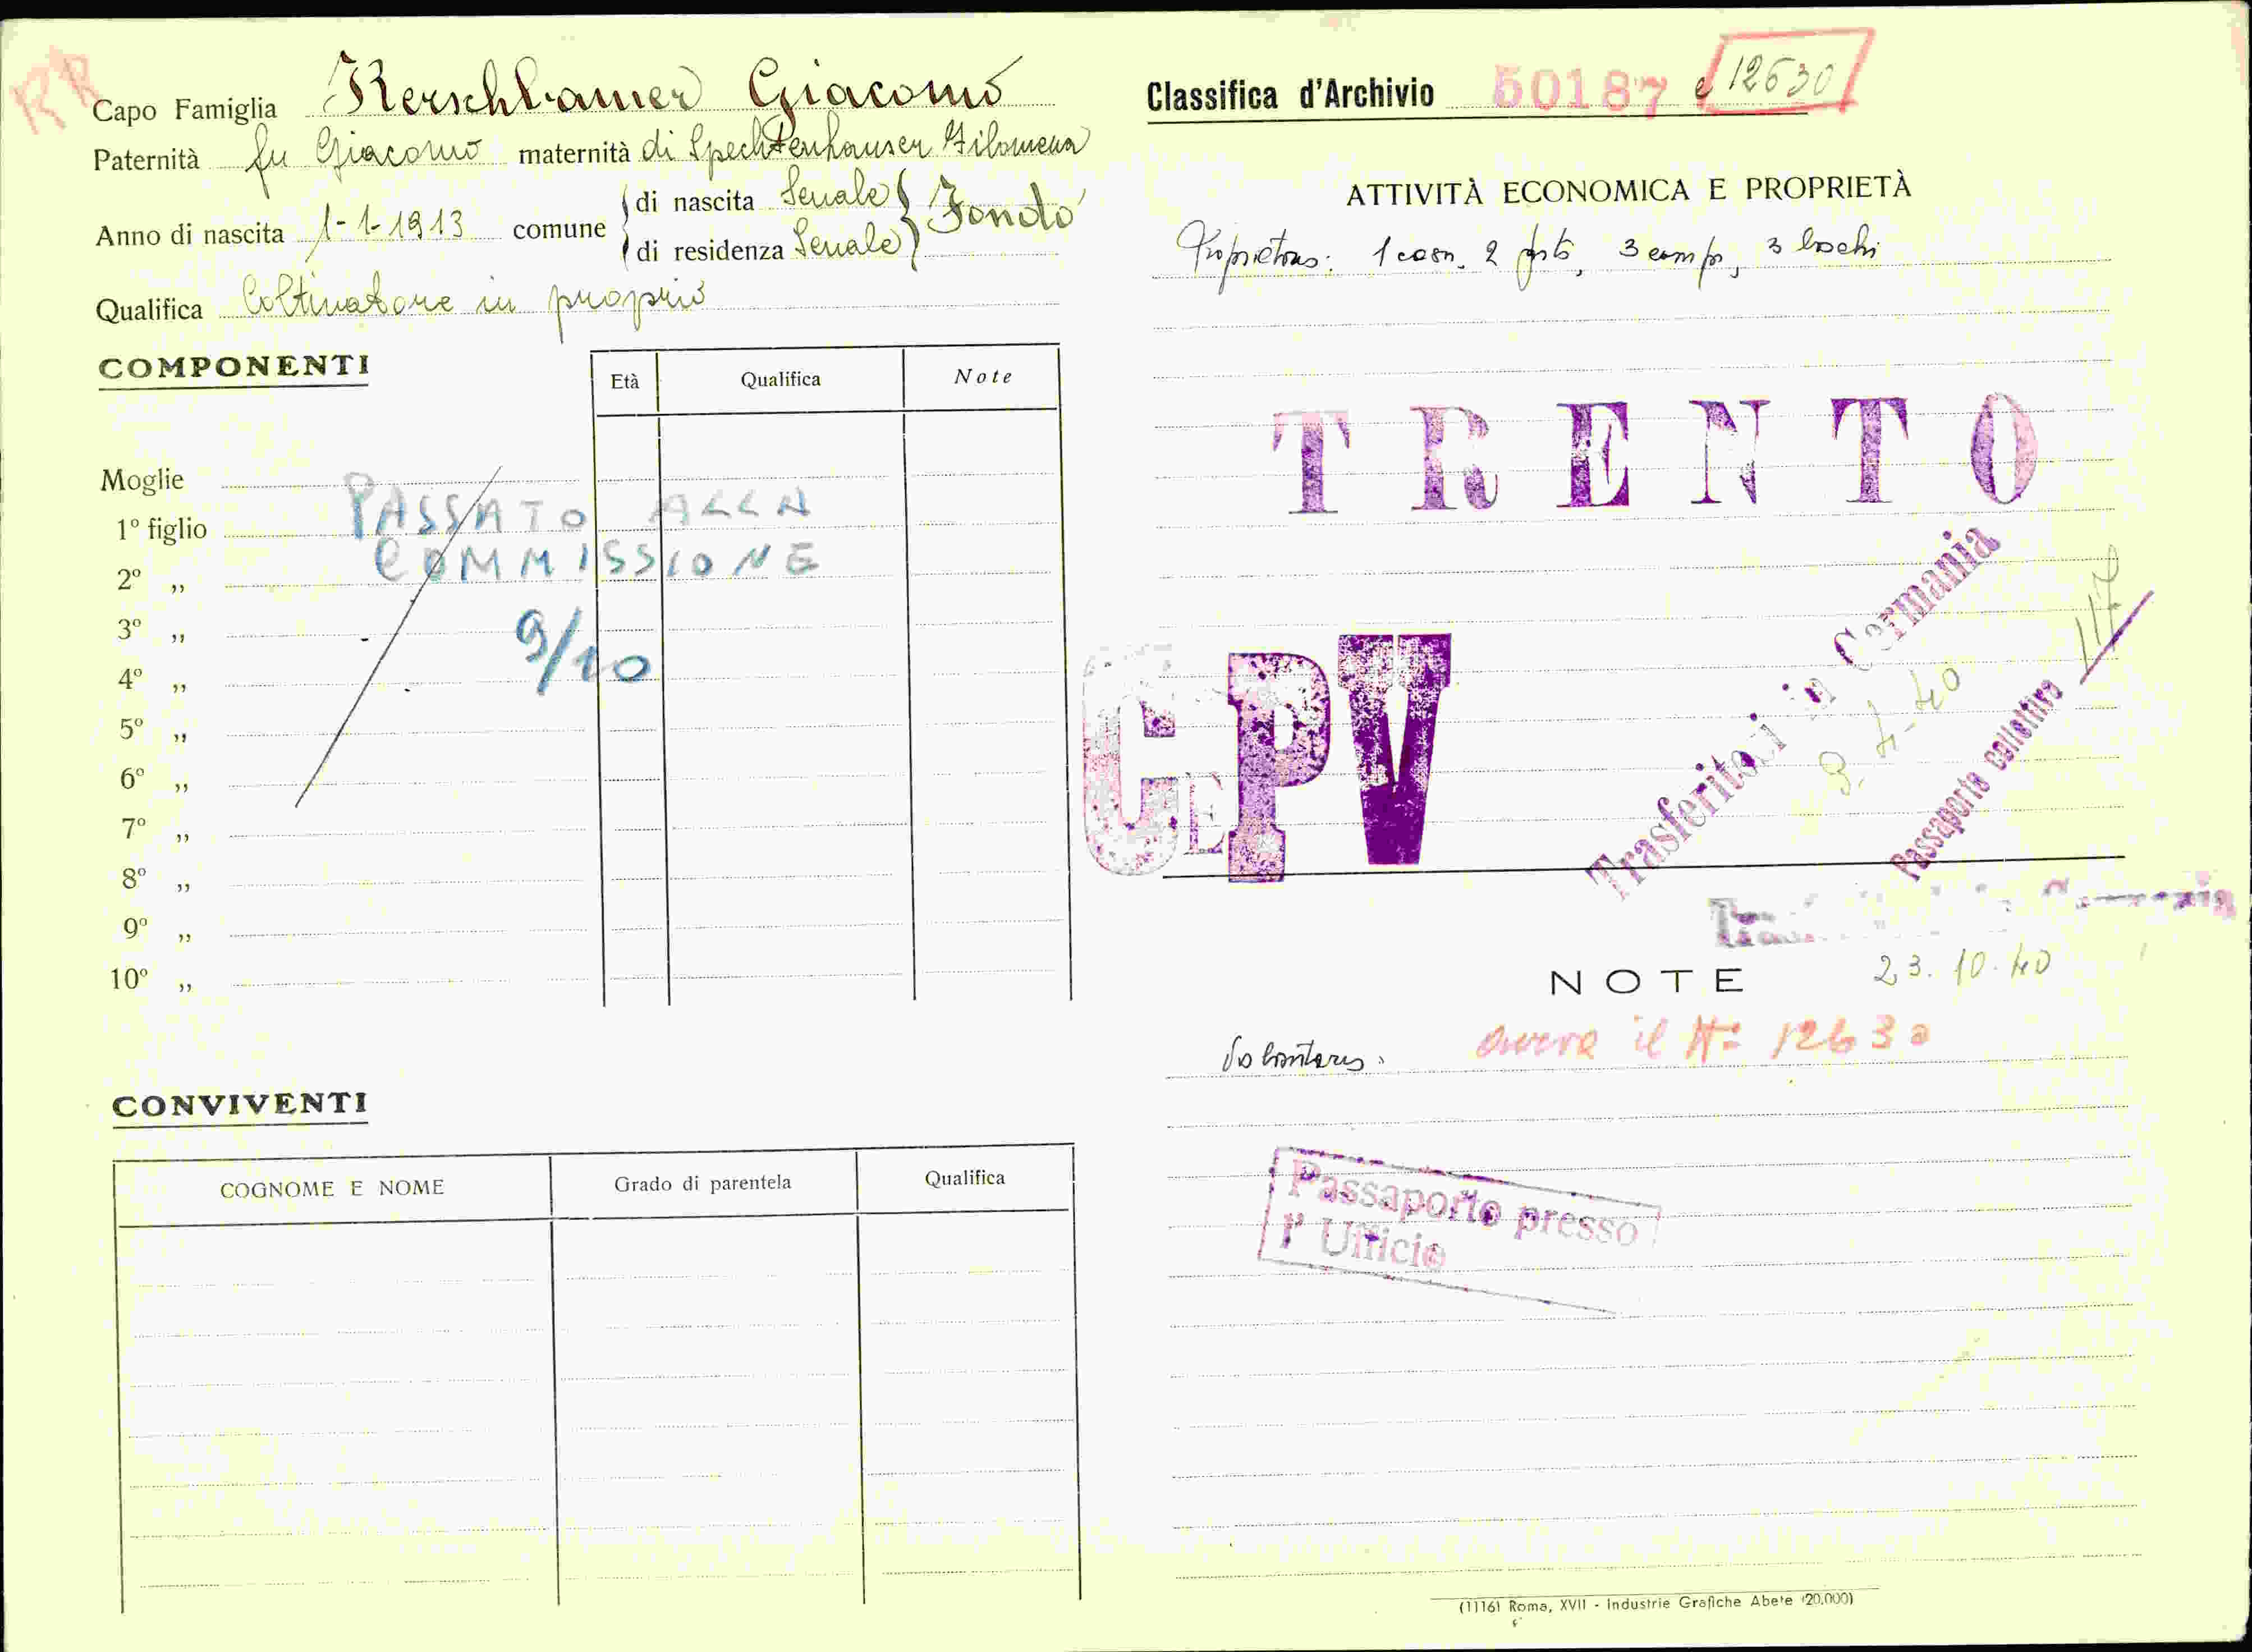 RR
Capo Famiglia Kerschbamer Giacomo
Paternità fu Giacomo maternità di Spechtenhauser Filomena
Anno di nascita 1-1-1913 comune di nascita Senale Fondo
di residenza Senale
Qualifica Coltivatore in proprio
COMPONENTI
Età Qualifica Note
Moglie
1º figlio
2º „
3º „
4º „
5º „
6º „
7º „
8º „
9º „
10º „
PASSATO ALLA
COMMISSIONE
9/10
CONVIVENTI
COGNOME E NOME Grado di parentela Qualifica
Classifica d'Archivio 50187 e 12630
ATTIVITÀ ECONOMICA E PROPRIETÀ
1 casa, 2 prati, 3 campi, 3 boschi
TRENTO
CEPV
Trasferitosi in Germania
9-4-40
Passaporto collettivo 117
23.10.40
NOTE
il Nº 12630
Passaporto presso
l' Ufficio
(11161 Roma, XVII - Industrie Grafiche Abete (20.000)